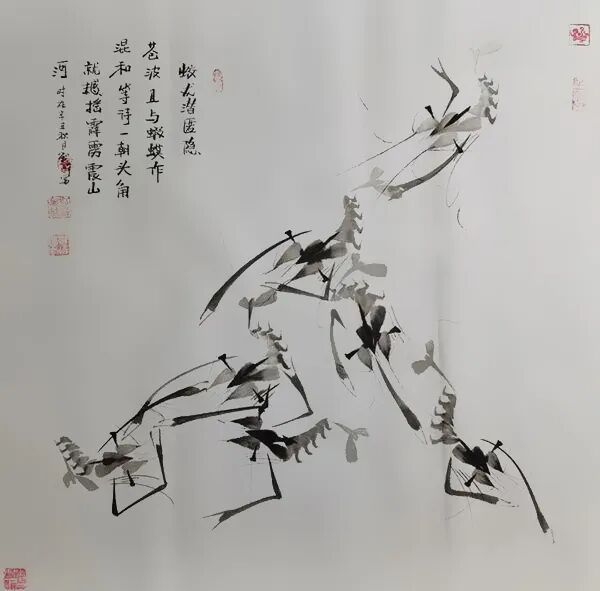 蛟龙潜匿隐
苍波且与蝦蟆作
混和等待一朝头角
就撼摇霹雳震山
河 时在辛丑秋月